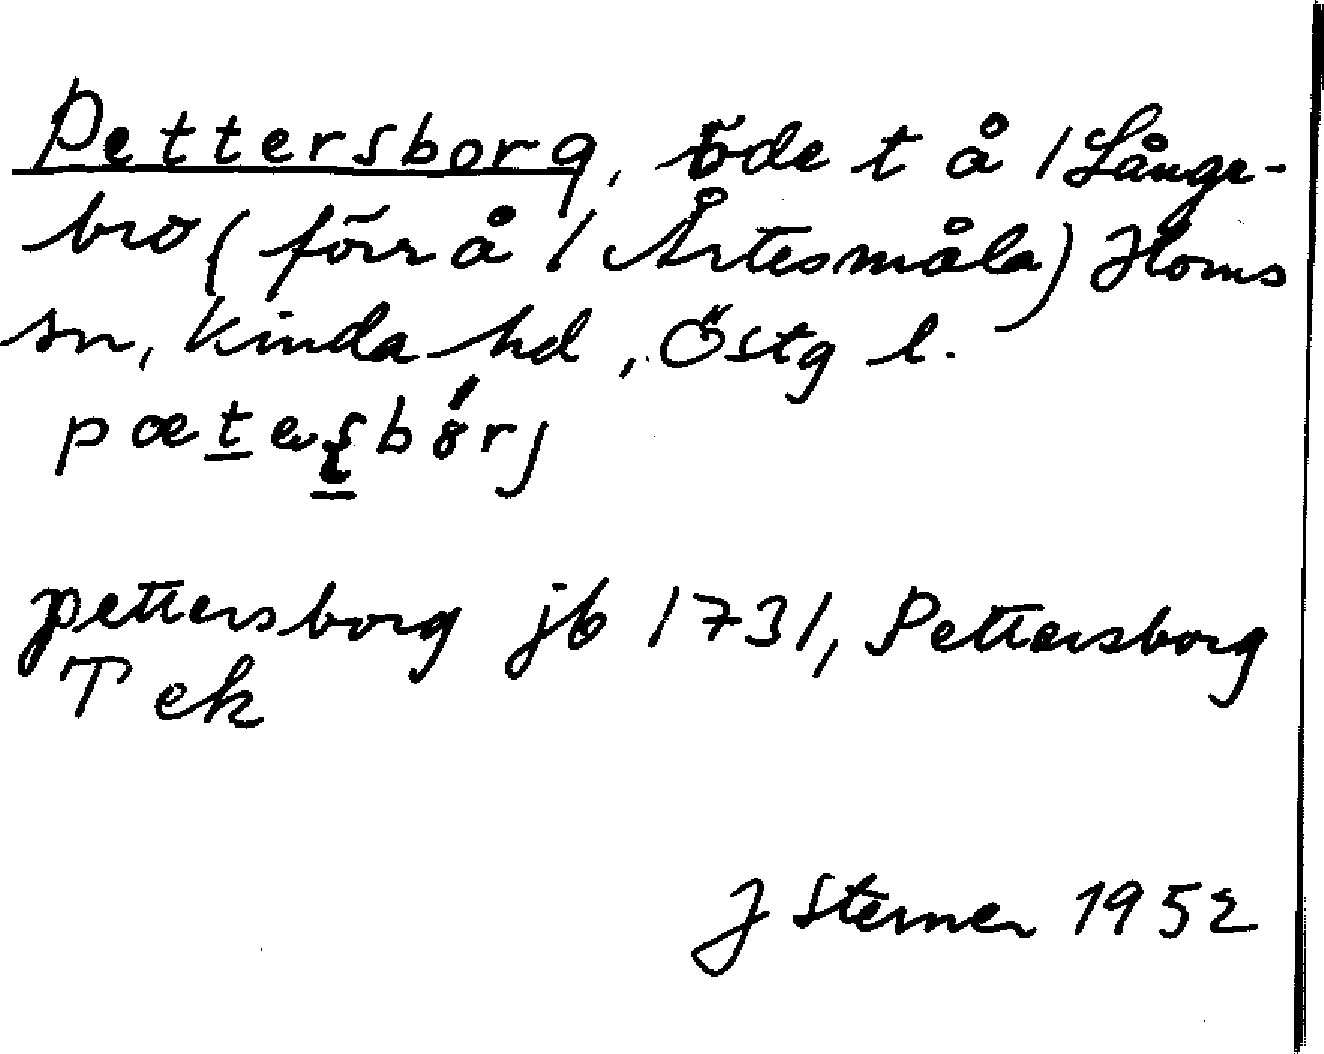 Pettersborg, öde t å / Långe-
bro (förr å / Årtesmåla) Horns
sn, Kinda hd, Östg l.
pætaʂbórj
pettersborg jb 1731, Pettersborg
T ek
J Sterner 1952